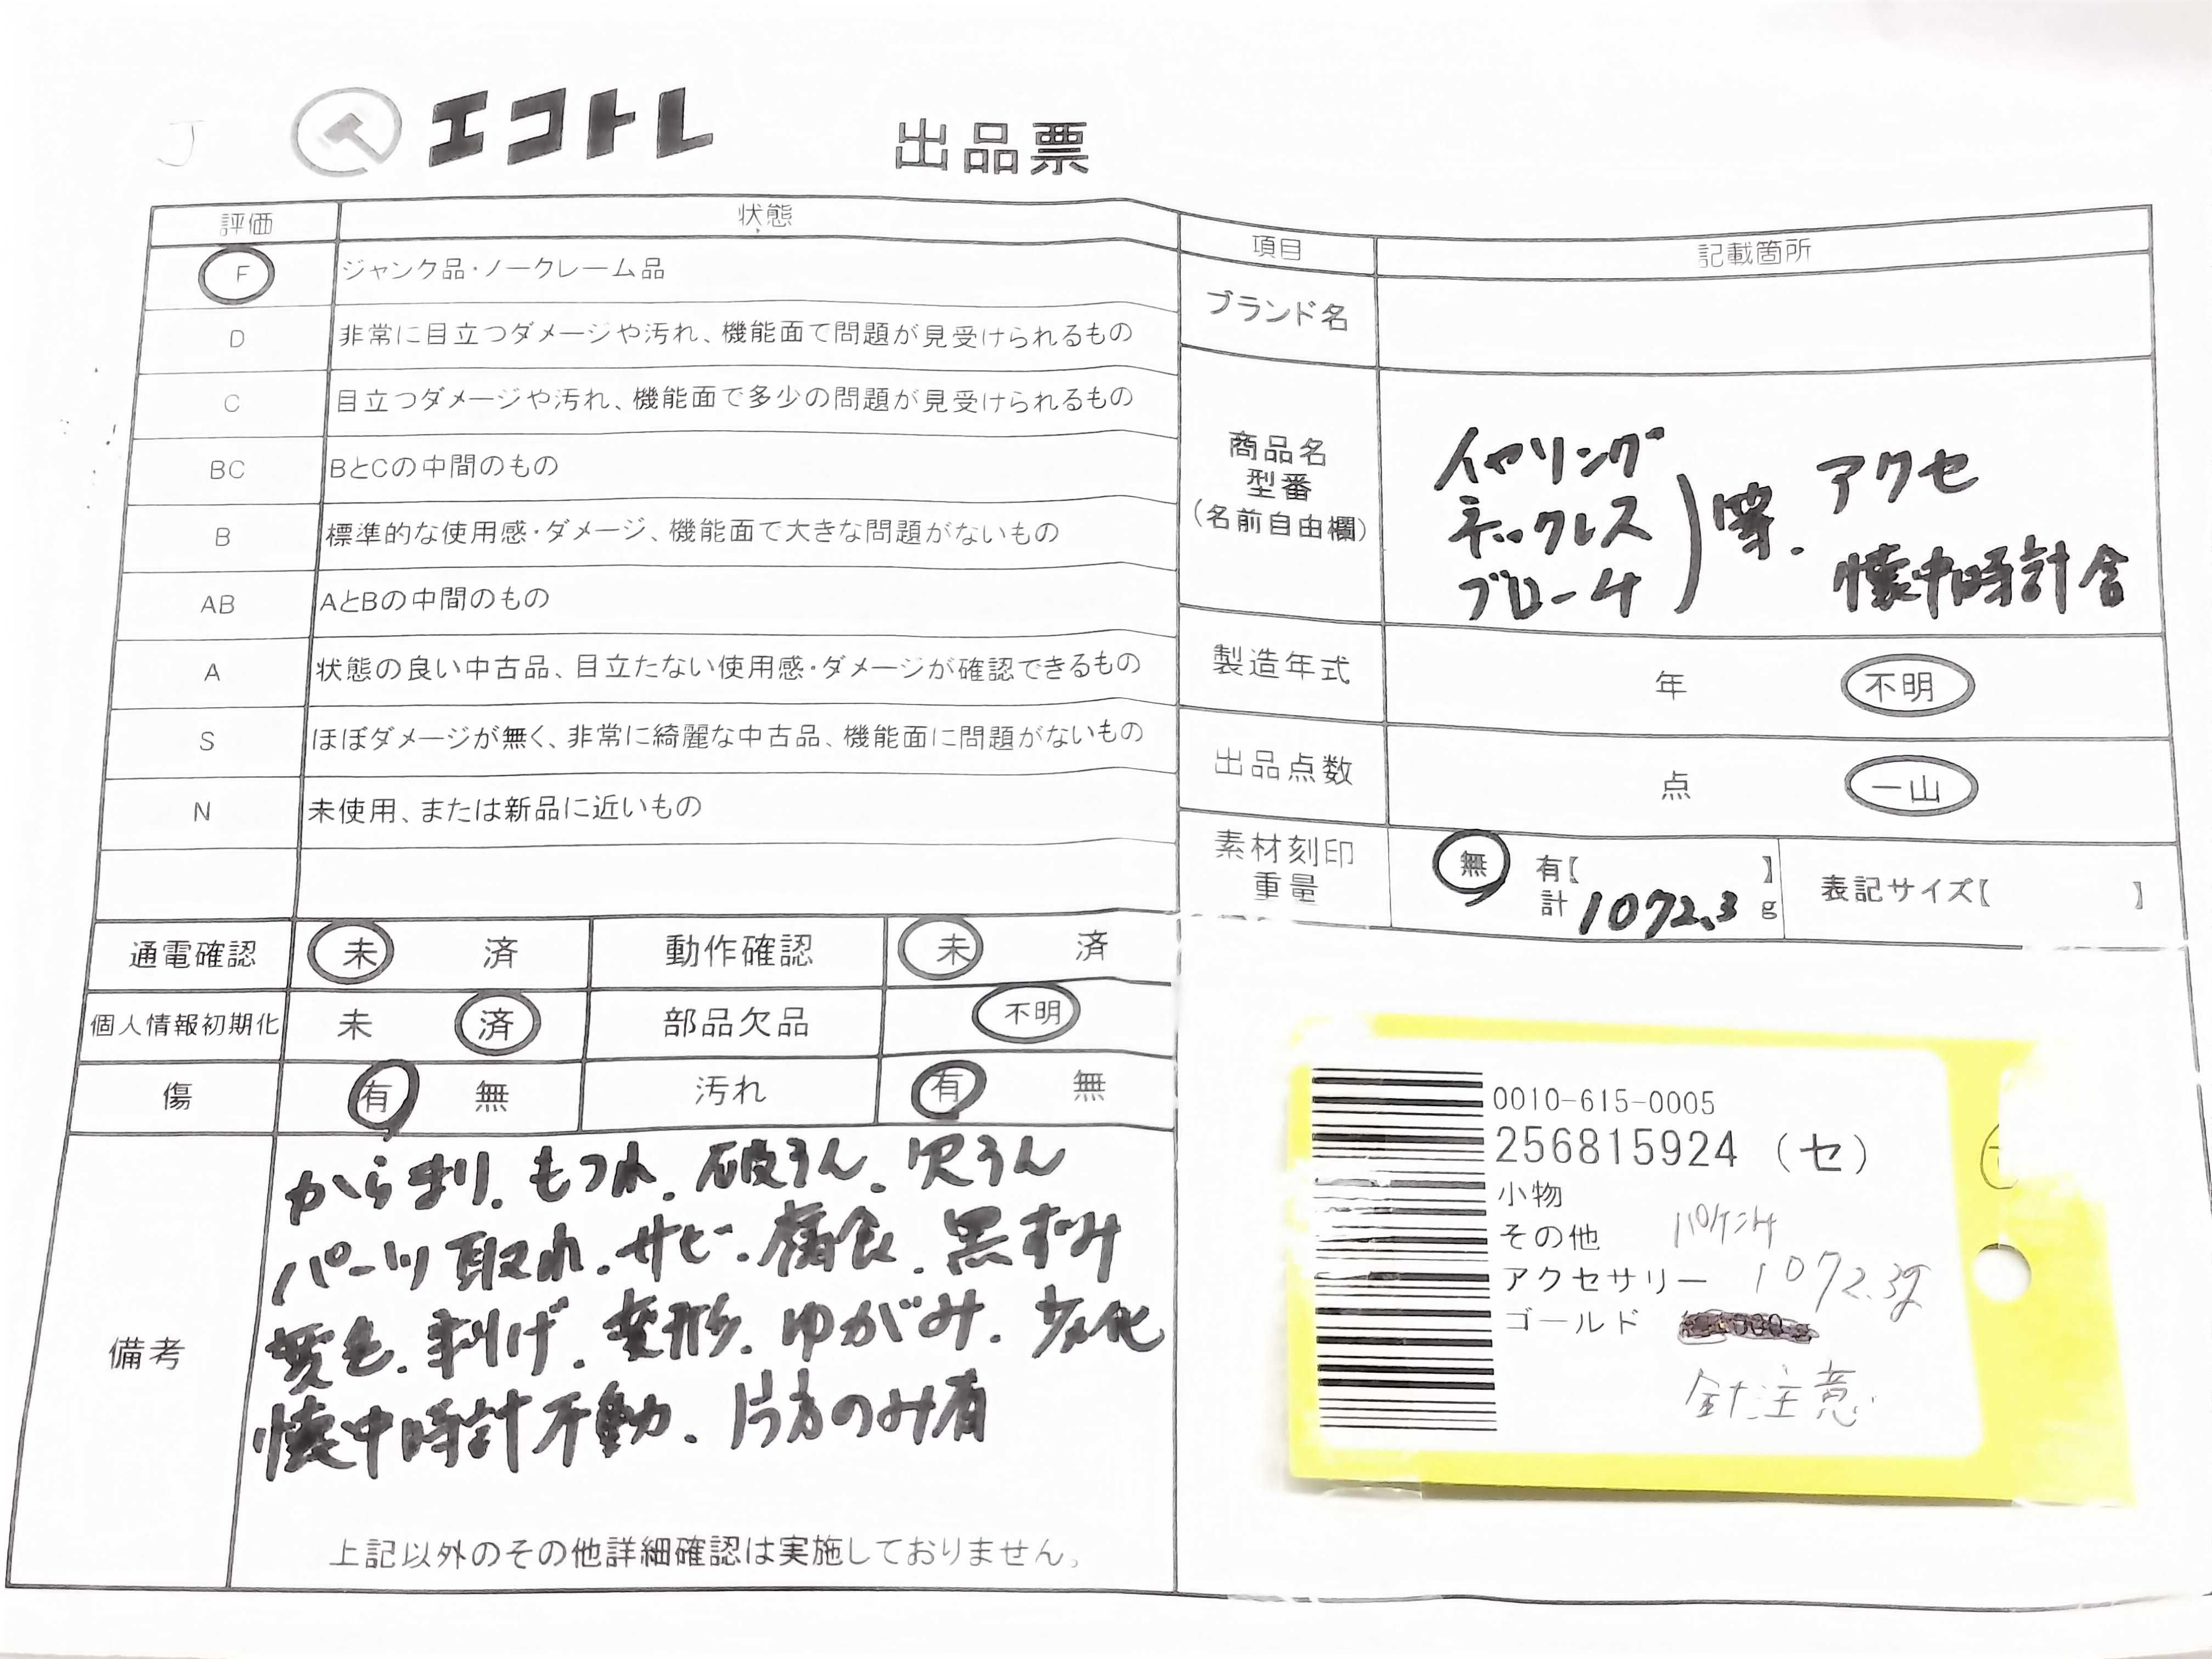 J
エコトレ 出品票
評価 状態
F ジャンク品・ノークレーム品
D 非常に目立つダメージや汚れ、機能面で問題が見受けられるもの
C 目立つダメージや汚れ、機能面で多少の問題が見受けられるもの
BC BとCの中間のもの
B 標準的な使用感・ダメージ、機能面で大きな問題がないもの
AB AとBの中間のもの
A 状態の良い中古品、目立たない使用感・ダメージが確認できるもの
S ほぼダメージが無く、非常に綺麗な中古品、機能面に問題がないもの
N 未使用、または新品に近いもの
通電確認 未 済 動作確認 未 済
個人情報初期化 未 済 部品欠品 不明
傷 有 無 汚れ 有 無
備考
からまり、もつれ、破そん、欠そん
パーツ取れ、サビ、腐食、黒ずみ
変色、剥げ、変形、ゆがみ、劣化
懐中時計不動、片方のみ有
上記以外のその他詳細確認は実施しておりません。
項目 記載箇所
ブランド名
商品名
型番
(名前自由欄)
イヤリング
ネックレス
ブローチ
等、アクセ
懐中時計含
製造年式 年 不明
出品点数 点 一山
素材刻印
重量
無 有【 】
計 1072.3 g
表記サイズ【 】
0010-615-0005
256815924 (セ)
小物
その他
アクセサリー 1072.3g
ゴールド
針注意